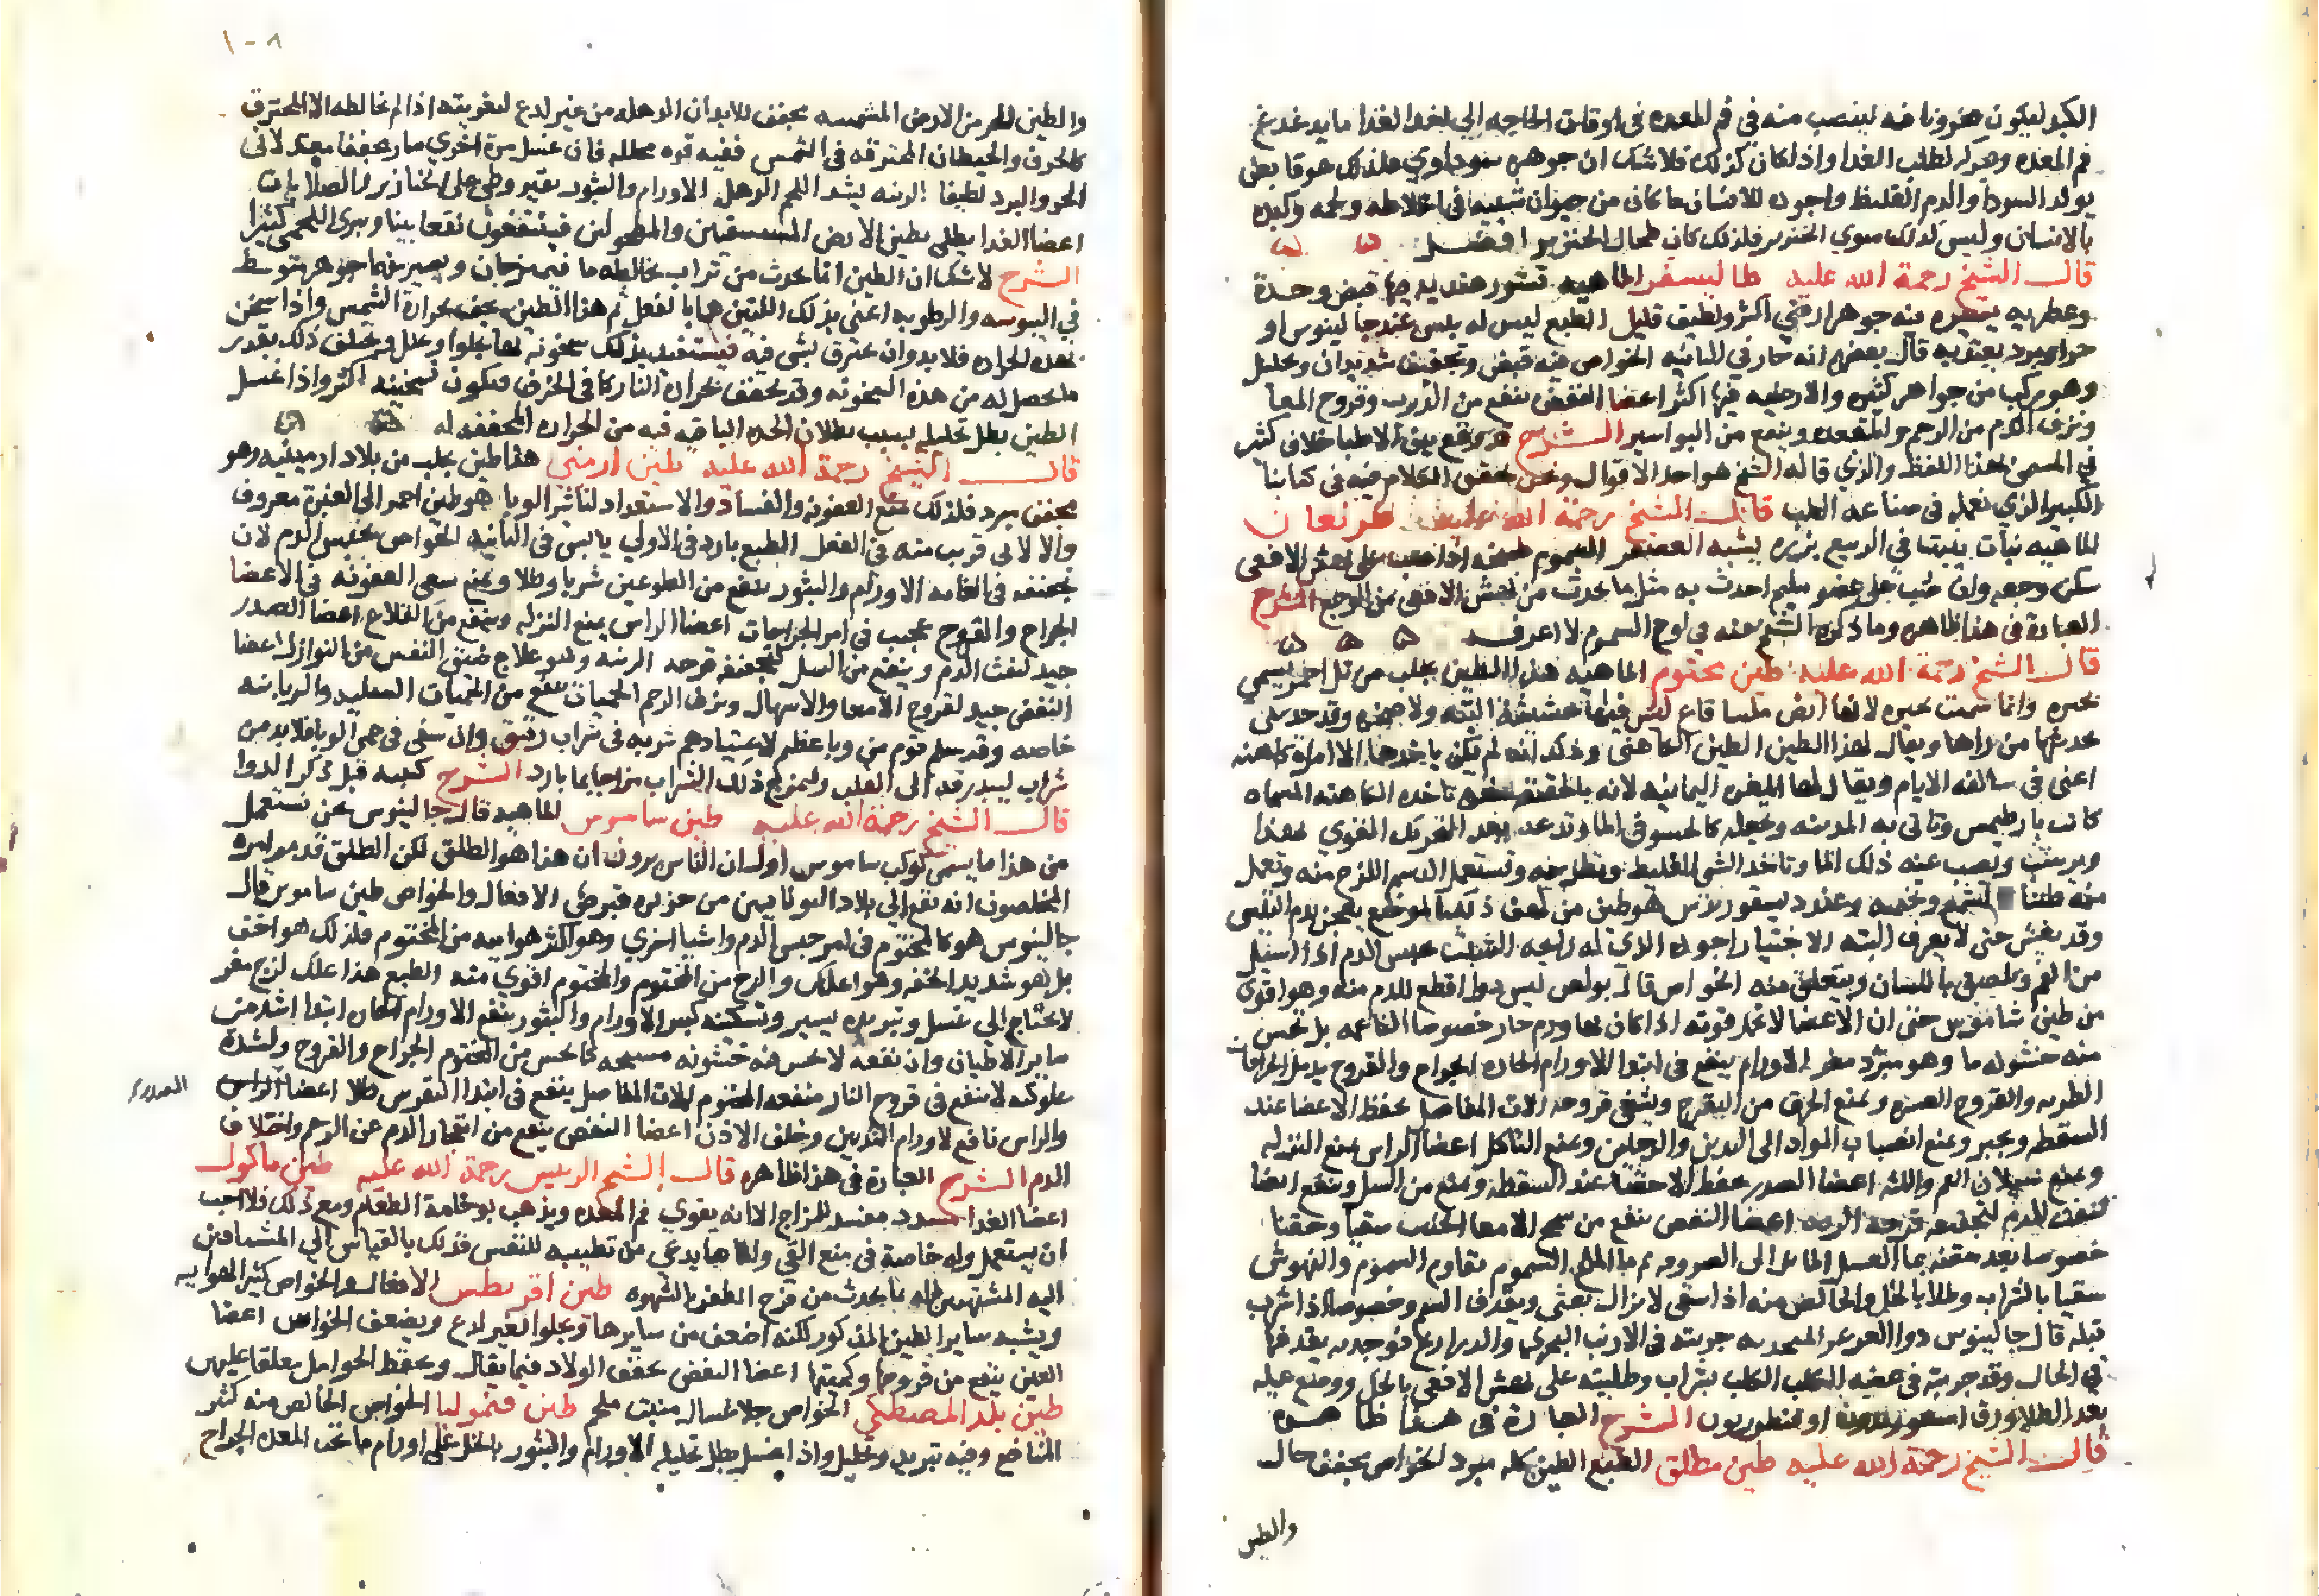 الكبد ليكون مخزونا فيه لينصب منه في فم المعده في اوقات الحاجه الي الغدا ما يدغدغ
فم المعده ويحركه لطلب الغدا واذا كان كذلك فلا شك ان جوهره سوداوي فلذلك هو قابض
يولد السودا والدم الغليظ واجوده للانسان ما كان من حيوان شبيه في اخلاطه ولحمه وكبده
بالانسان وليس كذلك سوي الخنزير فلذلك كان طحال الخنزير افضل
قال الشيخ رحمة الله عليه طاليسفر الماهيه قشور هنديه فيها قبض وحدة
وعطريه يسيره فيه جوهر ارضي اكثر ولطيف قليل الطبع ليس له عند جالينوس او
حر او برد يعتد به قال بعضهم انه حار في الثانيه الخواص فيه قبض وتجفيف شديدان وتحليل
وهو مركب من جواهر كثيره والارضيه فيها اكثر اعضا النفض ينفع من الذرب وقروح المعا
ونزف الدم من الرحم والمقعده وينفع من البواسير الشرح قد وقع بين الاطبا خلاف كثير
في المسمى بهذا اللفظ والذي قاله الشيخ هو احد الاقوال ونحن نحقق الكلام فيه في كتابنا
الكبير الذي نعمله في صناعه الطب قال الشيخ رحمة الله عليه
الماهيه نبات ينبت في الربيع بزره يشبه العصفر السموم طبيخه اذا صب على نهش الافعى
سكن وجعه وان صب على عضو سليم احدث به مثل ما يحدث من نهش الافعى من الوجع الشرح
العبارة في هذا ظاهره وما ذكره الشيخ عنه في لوح السموم لا اعرفه
قال الشيخ رحمة الله عليه طين مختوم الماهيه هذا الطين يجلب من تل احمر يسمي
بحيره وانما سميت بحيره لانها ارض ملسا قاع ليس فيها حشيشة البته ولا صخره وقد حدثني
محدثها من راها ويقال لهذا الطين الطين الكاهني وذلك انه لم يكن ياخدها الا امراة كاهنه
اعني في سالف الايام ويقال لها المغره اليمانيه لانه بالحقيقه مغره تاخذه الكاهنه المسماه
كانت بارطيمس وتاتي به المدينه وتجعله كالحسو في الما وتدعه بعد التحريك القوي لهذا
ويرسب ويصب عنه ذلك الما وتاخد الشي الغليظ وتطرحه وتستعمل الدسم اللزج منه وتعمل
منه طينا وتختمه وعند ديسقوريدس هو طين من كهف ذلك الموضع يعجن بدم التيس
وقد يغش حتى لا يعرف البته الاختيار اجوده الذي له رايحه الشبت يحبس الدم اذا استعمل
من الفم ويلصق باللسان ويتعلق منه الخواص قال بولص ليس دوا اقطع للدم منه وهو اقوى
من طين شاموس حتى ان الاعضا لا تحتمل قوته اذا كان بها ورم حار خصوصا الناعمه بل تحس
منه خشونه ما وهو مبرد مغر الاورام ينفع في ابتدا الاورام الحاره الجراح والقروح يدمل الجراحات
الطريه والقروح العسره ويمنع الحرق من التقرح ويشفي قروحه الات المفاصل يحفظ الاعضا عند
السقطه ويجبر ويمنع انصباب المواد الى اليدين والرجلين ويمنع التاكل اعضا الراس يمنع النزله
ويمنع سيلان الفم واللثه اعضا الصدر يحفظ الاحشا عند السقطه وينفع من السل وينفع ايضا
لنفث الدم لتجفيفه قرحه الريه اعضا النفض ينفع من سحج الامعا الخبيث سقيا وحقنا
خصوصا بعد حقنه بما العسل المايل الى الصروفه ثم بما الملح السموم يقاوم السموم والنهوش
سقيا بالشراب وطلا بالخل والخالص منه اذا سقي لا يزال يغثي ويقذف السم وخصوصا اذا شرب
قبله قال جالينوس دوا العرعر المتخذ به جربته في الارنب البحري والذراريح فوجدته يقذفها
في الحال وقد جربته في عضة الكلب الكلب بشراب وطليته على نهش الافعى بالخل ووضع عليه
بعد الطلا ورق اسقورديون او قنطوريون الشرح العبارة في هذا ظاهره
قال الشيخ رحمة الله عليه طين مطلق الطبع الطين كله مبرد الخواص يجفف جال
والطين
١٠٨
والطين الحر من الارض المشمسه يجفف للابدان الرهله من غير لدع لتغريته اذا لم يخالطه الا المحترق
كالخزف والحيطان المحترقه في الشمس ففيه قوه محلله فان غسل مرة اخري صار مجففا معتدلا في
الحر والبرد لطيفا الزينه يشد اللحم الرهل الاورام والبثور وطي على الخنازير والصلابات
اعضا الغدا يطلى بطين الارض المستسقين والمطحولين فينتفعون نفعا بينا ويبرى اللحمي كثيرا
الشرح لا شك ان الطين انما يحدث من تراب يخالطه ما فيمتزجان ويصير منهما جوهر متوسط
في اليبوسه والرطوبه اعني بذلك اللتين هما بالفعل ثم هذا الطين يجف بحرارة الشمس واذا سخن
بهذه الحراره فلا بد وان يحترق شي فيه فيستفيد بذلك سخونه بها يجلوا ويحلل ويختلف ذلك بقدر
ما يحصل له من هذه السخونه وقد يجفف بحرارة النار كما في الخزف فيكون تسخينه اكثر واذا غسل
الطين بطل تحليله بسبب بطلان الحده الباقيه فيه من الحراره المجففه له
قال الشيخ رحمة الله عليه طين ارمني هذا طين يجلب من بلاد ارمينيه وهو
يجفف مبرد فلذلك يمنع العفونه والفساد والاستعداد لتاثير الوبا هو طين احمر الى الغبرة معروف
والالاني قريب منه في الفعل الطبع بارد في الاولي يابس في الثانيه الخواص يحبس الدم لان
تجفيفه في الغايه الاورام والبثور ينفع من الطواعين شربا وطلا ويمنع سعي العفونه في الاعضا
الجراح والقروح عجيب في امر الجراحات اعضا الراس يمنع النزله وينفع من القلاع اعضا الصدر
جيد لنفث الدم وينفع من السل لتجفيفه قرحه الريه وهو علاج ضيق النفس من النوازل اعضا
النفض جيد لقروح الامعا والاسهال ونزف الرحم الحميات ينفع من الحميات السليه والوبايه
خاصه وقد سلم قوم من وبا عظيم لاعتيادهم شربه في شراب رقيق وان سقي في حمى الوبا فلابد من
شراب ليبدرقه الى القلب وليمزج ذلك الشراب مزاجا بما بارد الشرح كتبه قبل ذكر الدوا
قال الشيخ رحمة الله عليه طين ساموس الماهيه قال جالينوس نحن نستعمل
من هذا ما يسمى كوكب ساموس اولسان الناس يرون ان هذا هو الطلق لكن الطلق قد
المخلصون انه نقع الي بلاد اليونانيين من جزيره قبرص الافعال والخواص طين ساموس قال
جالينوس هو كالمختوم في امر حبس الدم واشيا اخري وهو اكثر هواييه من المختوم فلذلك هو اخف
بل هو شديد الخفه وهو اعلك والزج من المختوم والمختوم اقوي منه الطبع هذا علك لزج مغر
لا يحتاج الي غسل وتبريده يسير وتسكينه كبير الاورام والبثور ينفع الاورام الحاره ابتدا اشد من
ساير الاطيان وان نفعه لا يحس منه خشونه مسحه كما يحس من المختوم الجراح والقروح ولشدة
علوكته لا ينفع في قروح النار منفعه المختوم الات المفاصل ينفع في ابتدا النقرس طلا اعضا الراس
والراس نافع لاورام الثديين وخلف الاذن اعضا النفض ينفع من انفجار الدم عن الرحم واختلاف
الدم الشرح العبارة في هذا ظاهره قال الشيخ الرييس رحمة الله عليه طين ماكول
اعضا الغدا مسدد مفسد للمزاج الا انه يقوي فم المعده ويذهب بوخامة الطعام ومع ذلك فلا احب
ان يستعمل وله خاصة في منع القي واما ما يدعي من تطييبه للنفس فذلك بالقياس الي المشتاقين
اليه المشتهين له بما يحدث من فرح الظفر بالشهوه طين اقريطس الافعال والخواص كثير الهواييه
ويشبه ساير الطين المذكور لكنه اضعف من سايرها ويجلوا بغير لدع ويضعف الخواص اعضا
العين ينفع من قروحها وكمنتها اعضا النفض يخفف الولاد فيما يقال ويحفظ الحوامل معلقا عليهن
طين بلد المصطكي الخواص جلا غسال منبت ملحم طين قيموليا الخواص الخالص منه كثير
المنافع وفيه تبريد وتحليل واذا غسل بطل تحليله الاورام والبثور بالخل على اورام ما تحت المعده الجراح